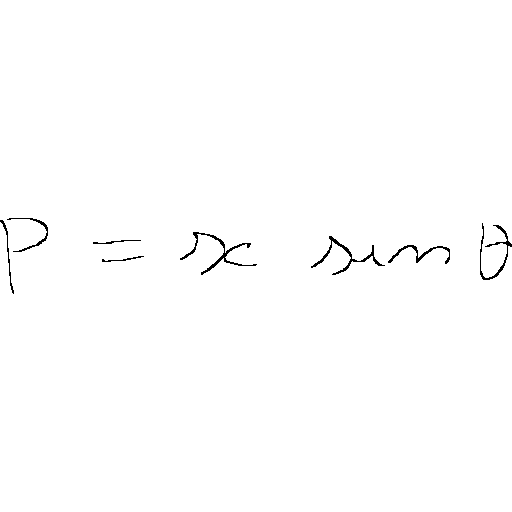 P = x sin θ